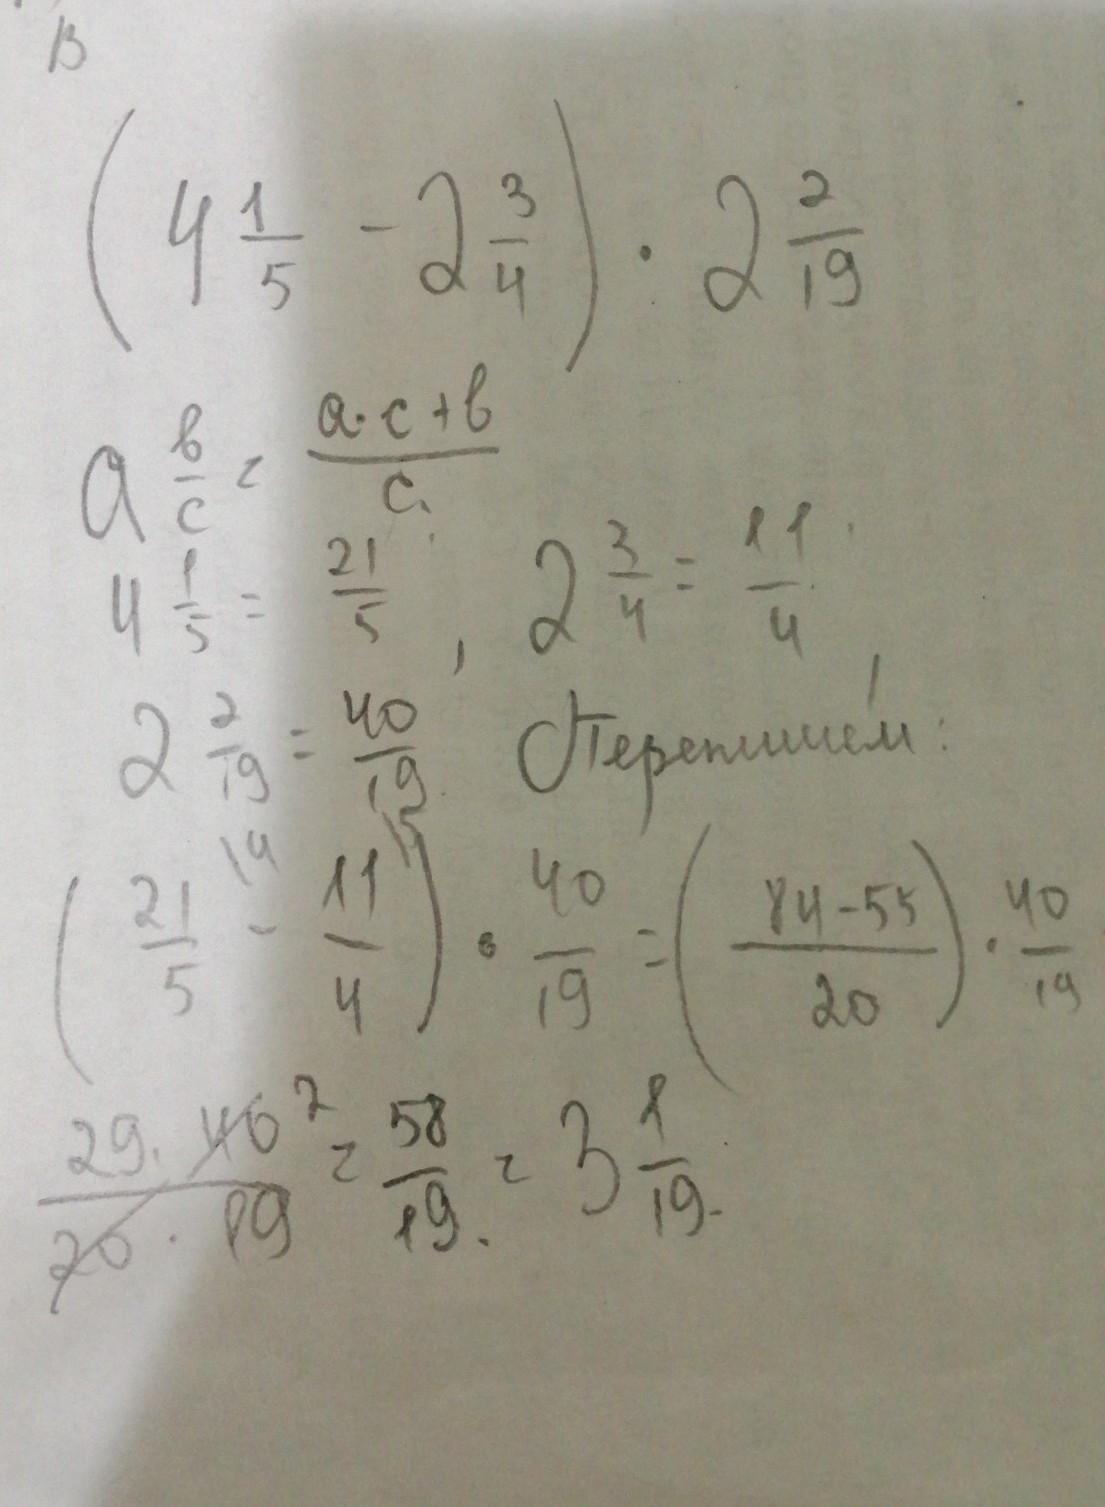 В
(4 1/5 - 2 3/4) · 2 2/19
a в/c = a·c+в/c.
4 1/5 = 21/5, 2 3/4 = 11/4,
2 2/19 = 40/19 Перепишем:
(21/5 \4 - 11/4 \5) · 40/19 = (84-55/20) · 40/19
29·40 2/20·19 = 58/19. = 3 1/19.